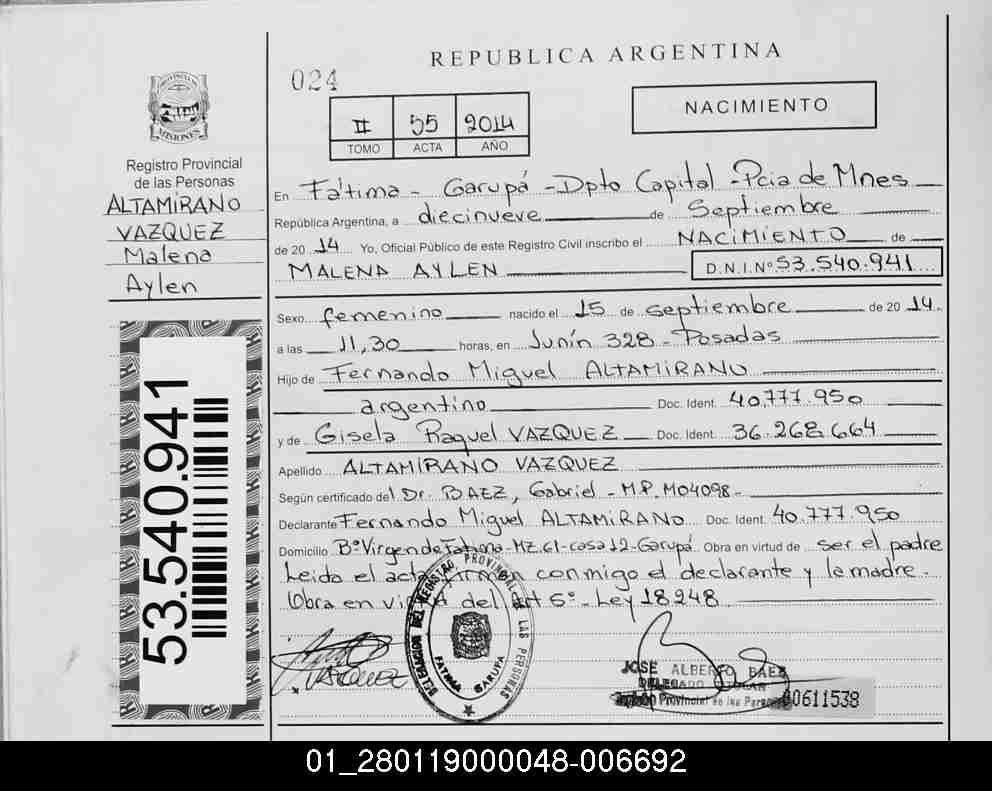 REPUBLICA ARGENTINA
024
NACIMIENTO
II 55 2014
TOMO ACTA AÑO
PROVINCIA DE
MISIONES
Registro Provincial
de las Personas
ALTAMIRANO
VAZQUEZ
Malena
Aylen
53.540.941
En Fátima - Garupá - Dpto Capital - Pcia de Mnes
República Argentina, a diecinueve de Septiembre
de 2014 Yo, Oficial Público de este Registro Civil inscribo el NACIMIENTO de
MALENA AYLEN D.N.I.Nº 53.540.941
Sexo femenino nacido el 15 de septiembre de 2014.
a las 11,30 horas, en Junín 328 - Posadas
Hijo de Fernando Miguel ALTAMIRANO
argentino Doc. Ident. 40.777.950
y de Gisela Raquel VAZQUEZ Doc. Ident. 36.268.664
Apellido ALTAMIRANO VAZQUEZ
Según certificado del Dr. BAEZ, Gabriel - M.P. M04098 -
Declarante Fernando Miguel ALTAMIRANO Doc. Ident. 40.777.950
Domicilio Bº Virgen de Fátima - Mz. 61 - casa 12 - Garupá Obra en virtud de ser el padre
Leida el acta firman conmigo el declarante y la madre.
Obra en virtud del Art 6º - Ley 18248
VASQUEZ
DELEGACION DEL REGISTRO PROVINCIAL DE LAS PERSONAS
FATIMA GARUPA
JOSE ALBERTO BAEZ
DELEGADO TITULAR
Registro Provincial de las Personas
00611538
01_280119000048-006692